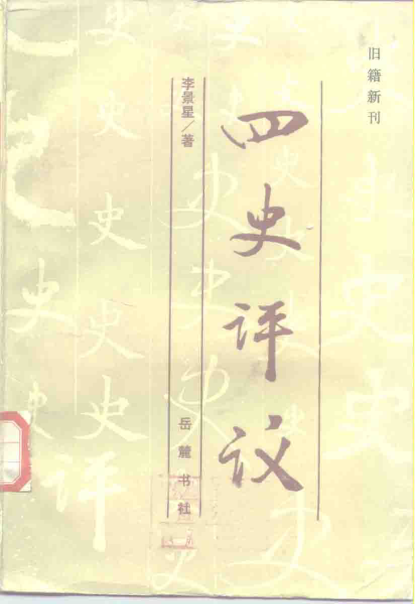 旧籍新刊
四史评议
李景星/著
岳麓书社